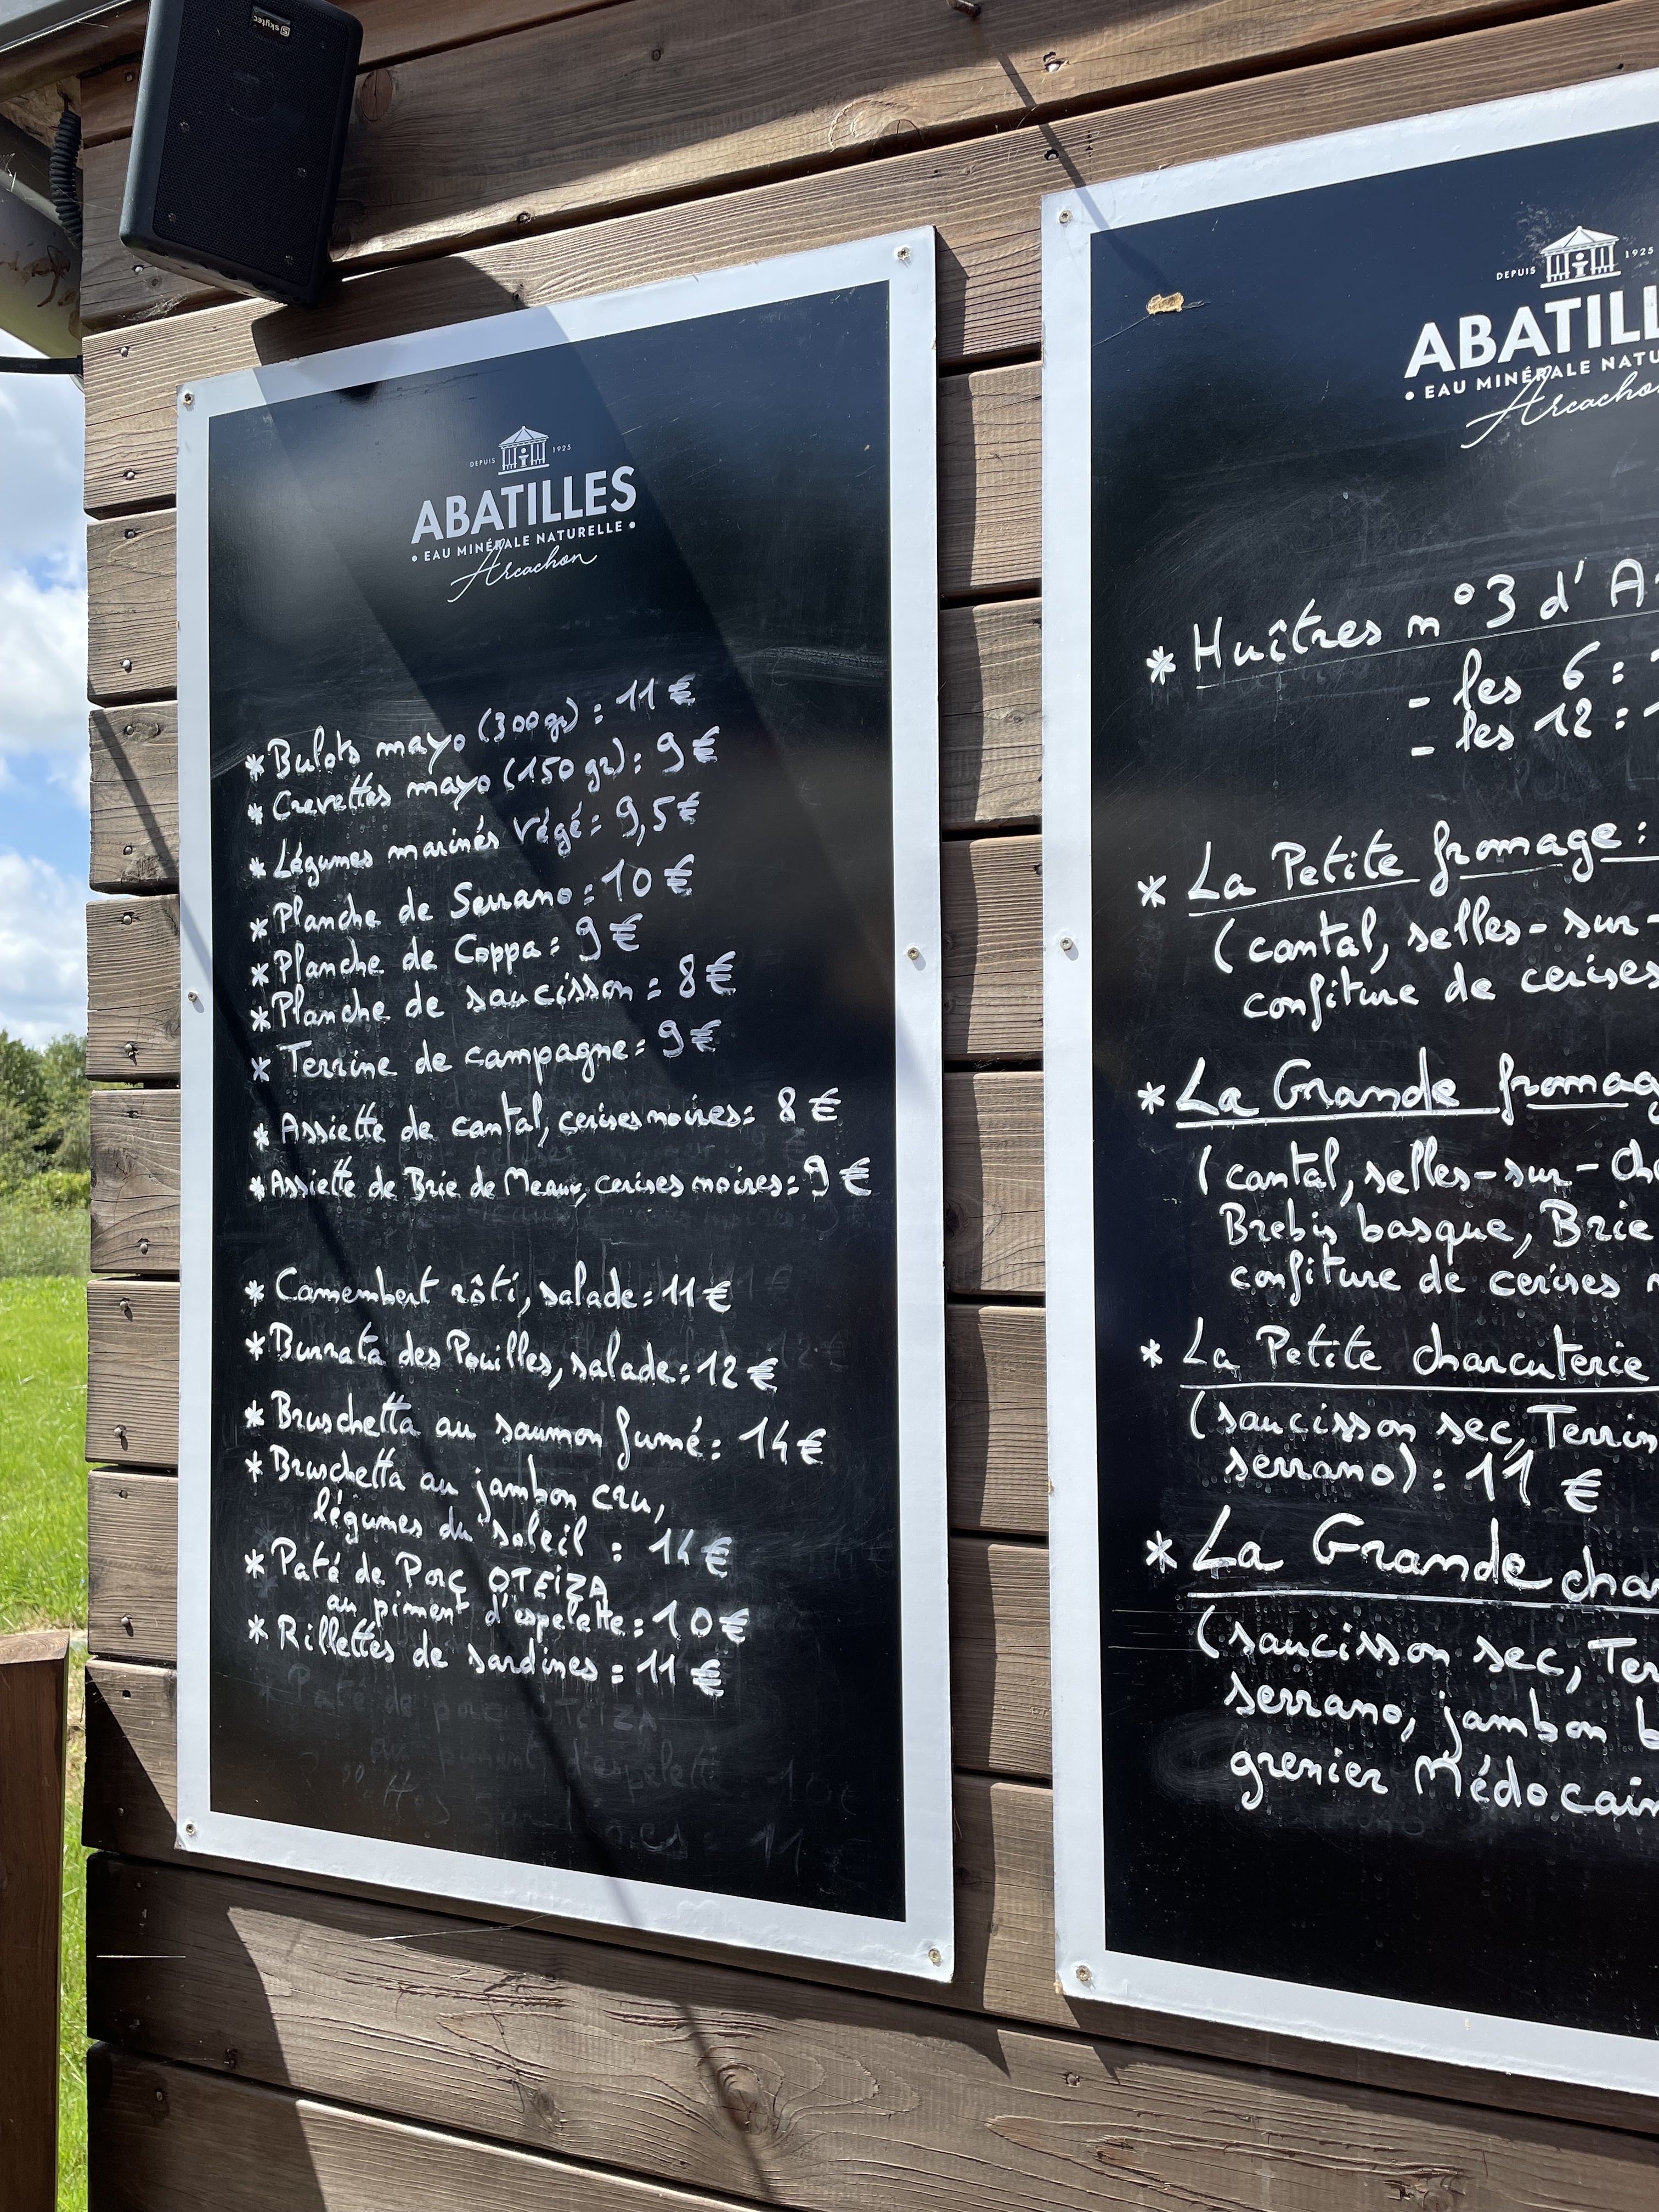 skytec
DEPUIS 1925
ABATILLES
• EAU MINÉRALE NATURELLE •
Arcachon
* Bulots mayo (300gr) : 11 €
* Crevettes mayo (150 gr) : 9 €
* Légumes marinés végé : 9,5 €
* Planche de Serrano : 10 €
* Planche de Coppa : 9 €
* Planche de saucisson : 8 €
* Terrine de campagne : 9 €
* Assiette de cantal, cerises noires : 8 €
* Assiette de Brie de Meaux, cerises noires : 9 €
* Camembert rôti, salade : 11 €
* Burrata des Pouilles, salade : 12 €
* Bruschetta au saumon fumé : 14 €
* Bruschetta au jambon cru,
légumes du soleil : 14 €
* Paté de Porc OTEiZA
au piment d'espelette : 10 €
* Rillettes de sardines : 11 €
Paté de porc OTEiZA
au piment d'espelette 10€
11
DEPUIS 1925
ABATILL
• EAU MINÉRALE NATU
Arcacho
* Huîtres n°3 d'A
- les 6 :
- les 12 : 1
* La Petite fromage :
(cantal, selles-sur-
confiture de cerises
* La Grande fromag
(cantal, selles-sur-Che
Brebis basque, Brie
confiture de cerises n
* La Petite charcuterie
(saucisson sec, Terrin
serrano) : 11 €
* La Grande char
(saucisson sec, Ter
serrano, jambon b
grenier Médocain